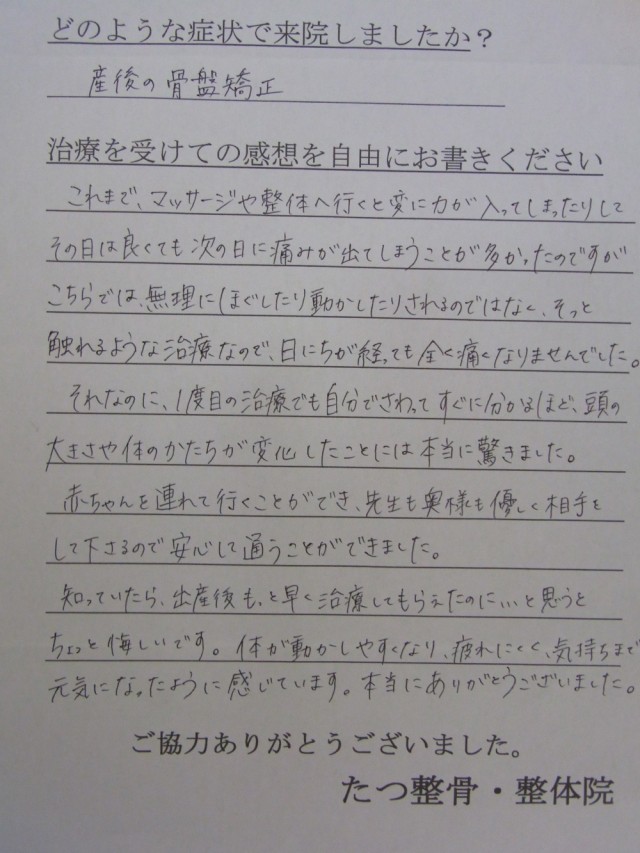 どのような症状で来院しましたか？
産後の骨盤矯正
治療を受けての感想を自由にお書きください
これまで、マッサージや整体へ行くと変に力が入ってしまったりして
その日は良くても次の日に痛みが出てしまうことが多かったのですが
こちらでは、無理にほぐしたり動かしたりされるのではなく、そっと
触れるような治療なので、日にちが経っても全く痛くなりませんでした。
それなのに、1度目の治療でも自分でさわってすぐに分かるほど、頭の
大きさや体のかたちが変化したことには本当に驚きました。
赤ちゃんを連れて行くことができ、先生も奥様も優しく相手を
して下さるので安心して通うことができました。
知っていたら、出産後もっと早く治療してもらえたのに…と思うと
ちょっと悔しいです。体が動かしやすくなり、疲れにくく、気持ちまで
元気になったように感じています。本当にありがとうございました。
ご協力ありがとうございました。
たつ整骨・整体院